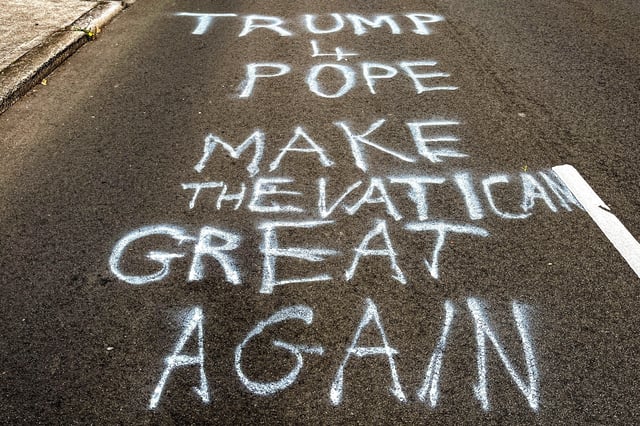 TRUMP
4
POPE
MAKE
THE VATICAN
GREAT
AGAIN